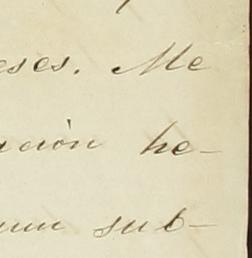 eses. Me
ación he-
sub-